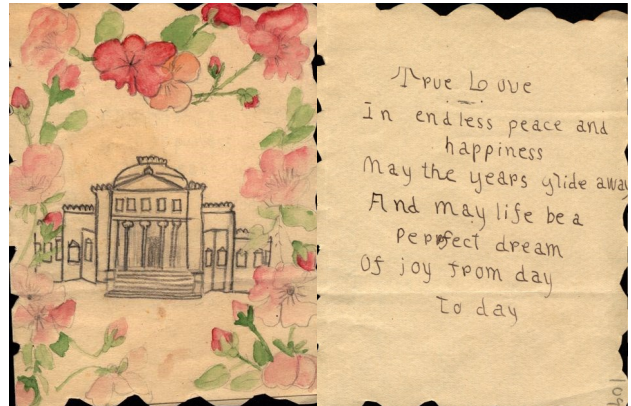 True Love
In endless peace and
happiness
May the years glide away
And may life be a
perfect dream
Of joy from day
to day
109